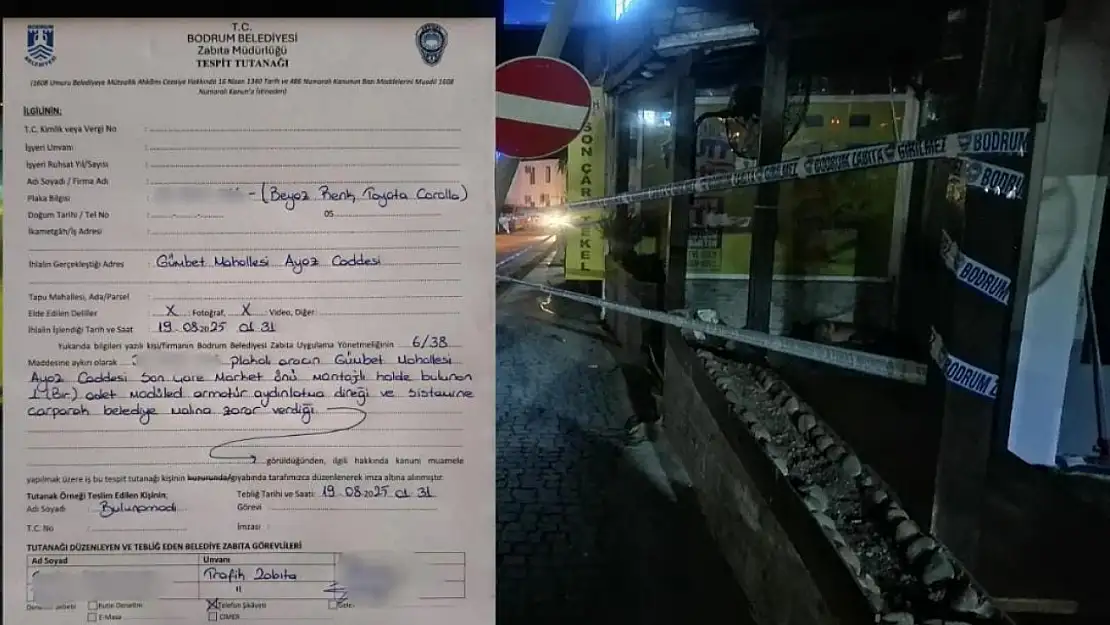 T.C.
BODRUM BELEDİYESİ
Zabıta Müdürlüğü
TESPİT TUTANAĞI
(1608 Umuru Belediyeye Müteallik Ahkâmı Cezaiye Hakkında 16 Nisan 1340 Tarih ve 486 Numaralı Kanunun Bazı Maddelerini Muadil 1608
Numaralı Kanun'a İstinaden)
İLGİLİNİN;
T.C. Kimlik veya Vergi No :
İşyeri Unvanı :
İşyeri Ruhsat Yıl/Sayısı :
Adı Soyadı / Firma Adı :
Plaka Bilgisi : - (Beyaz Renk, Toyota Corolla)
Doğum Tarihi / Tel No : 05
İkametgâh/İş Adresi :
İhlalin Gerçekleştiği Adres : Gümbet Mahallesi Ayaz Caddesi
Tapu Mahallesi, Ada/Parsel :
Elde Edilen Deliller : X Fotoğraf, X Video, Diğer:
İhlalin İşlendiği Tarih ve Saat : 19.08.2025 01 31
Yukarıda bilgileri yazılı kişi/firmanın Bodrum Belediyesi Zabıta Uygulama Yönetmeliğinin 6/38
Maddesine aykırı olarak plakalı aracın Gümbet Mahallesi
Ayaz Caddesi Son Çare Market önü montajlı halde bulunan
1 (Bir) adet modüled armatür aydınlatma direği ve sistemine
çarparak belediye malına zarar verdiği
görüldüğünden, ilgili hakkında kanuni muamele
yapılmak üzere iş bu tespit tutanağı kişinin huzurunda/gıyabında tarafımızca düzenlenerek imza altına alınmıştır.
Tutanak Örneği Teslim Edilen Kişinin; Tebliğ Tarihi ve Saati: 19.08.2025 01 31
Adı Soyadı : Bulunamadı Görevi :
T.C. No : İmzası :
TUTANAĞI DÜZENLEYEN VE TEBLİĞ EDEN BELEDİYE ZABITA GÖREVLİLERİ
Ad Soyad Unvanı
Trafik Zabıta
"
Rutin Denetim X Telefon Şikayeti
E-Masa CİMER
SON ÇARE TEKEL
BODRUM ZABITA GİRİLMEZ BODRUM
BODRU
BODRUM
BODRUM Z